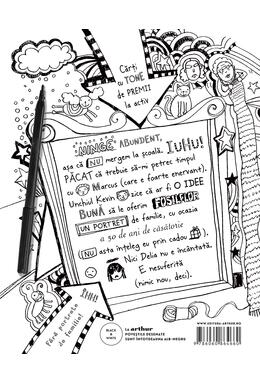 Cărți
cu TONE
de PREMII
la activ
NINGE ABUNDENT,
așa că NU mergem la școală. IUHU!
PĂCAT că trebuie să-mi petrec timpul
cu Marcus (care e foarte enervant).
Unchiul Kevin zice că ar fi O IDEE
BUNĂ să le oferim FOSILELOR
UN PORTRET de familie, cu ocazia
a 50 de ani de căsătorie
(NU asta înțeleg eu prin cadou).
Nici Delia nu e încântată.
E nesuferită
(nimic nou, deci).
Fără portrete
de familie!
BLACK
&
WHITE
La arthur
POVEȘTILE DESENATE
SUNT ÎNTOTDEAUNA ALB-NEGRU
WWW.EDITURA-ARTHUR.RO